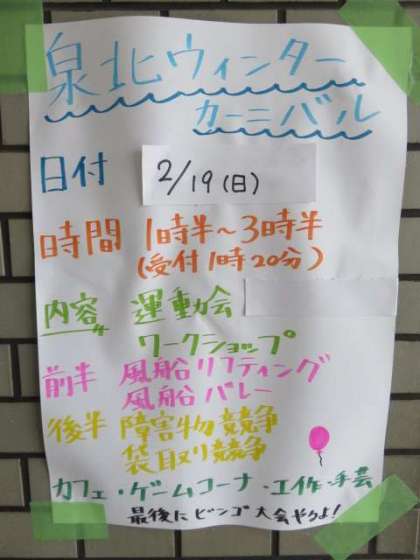 泉北ウィンター
カーニバル
日付 2/19(日)
時間 1時半～3時半
(受付1時20分)
内容 運動会
ワークショップ
前半 風船リフティング
風船バレー
後半 障害物競争
袋取り競争
カフェ・ゲームコーナ・工作・手芸
最後にビンゴ大会やるよ!